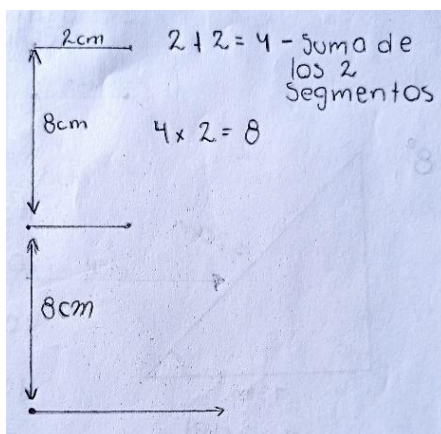 2cm 2+2=4 - Suma de
los 2
Segmentos
8cm 4x2=8
8cm